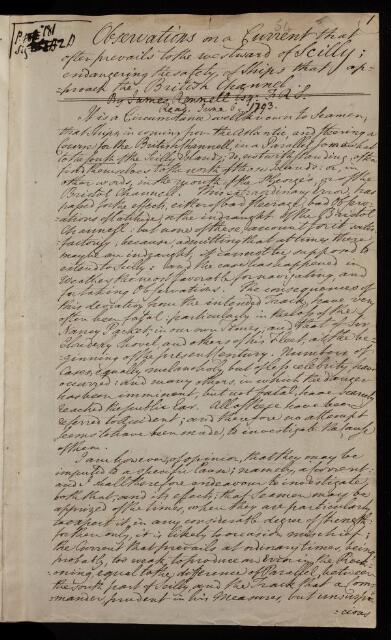 P. p. 181
Sig
1
Observations on a Current that
often prevails to the westward of Scilly;
endangering the safety of Ships that ap-
proach the British Channel.
By James Rennell Esq. F.R.S.
Read June 6 1793.
It is a Circumstance well known to Seamen,
that Ships in coming from the Atlantic, and steering a
Course for the British Channel, in a Parallel somewhat
to the south of the Scilly Islands; do, notwithstanding, often
find themselves to the north of those Islands: or, in
other words, in the mouth of St George's, or of the
Bristol Channell. This extraordinary Error, has
passed for the effect, either of bad steerage, bad Observ-
ations of Latitude, or the indraught of the Bristol
Channell: but none of these account for it satis-
factorily; because, admitting that at times there
may be an indraught, it cannot be supposed to
extend to Scilly: and the case has happened in
Weather the most favorable for navigating, and
for taking Observations. The consequences of
this deviation from the intended Track, have very
often been fatal: particularly in the loss of the
Nancy Packet, in our own times; and that of Sir
Cloudesly Shovel, and others of his Fleet, at the be-
ginning of the present Century. Numbers of
Cases, equally melancholy, but of less celebrity, have
occurred: and many others, in which the danger
has been imminent, but not fatal, have scarcely
reached the public Ear. All of these have been
referred to accident; and therefore no attempt
seems to have been made, to investigate the cause
of them.
I am however, of opinion, that they may be
imputed to a specific Cause; namely, a Current:
and I shall therefore endeavour to investigate
both that, and its effects; that Seamen may be
apprized of the times, when they are particularly
to expect it, in any considerable degree of strength:
for then only, it is likely to occasion mischief;
the Current that prevails at ordinary times, being
probably too weak to produce an Error in the Reck-
oning, equal to the difference of Parallel, between
the south part of Scilly, and the Track that a Com-
mander, prudent in his measures, but unsuspi-
cious